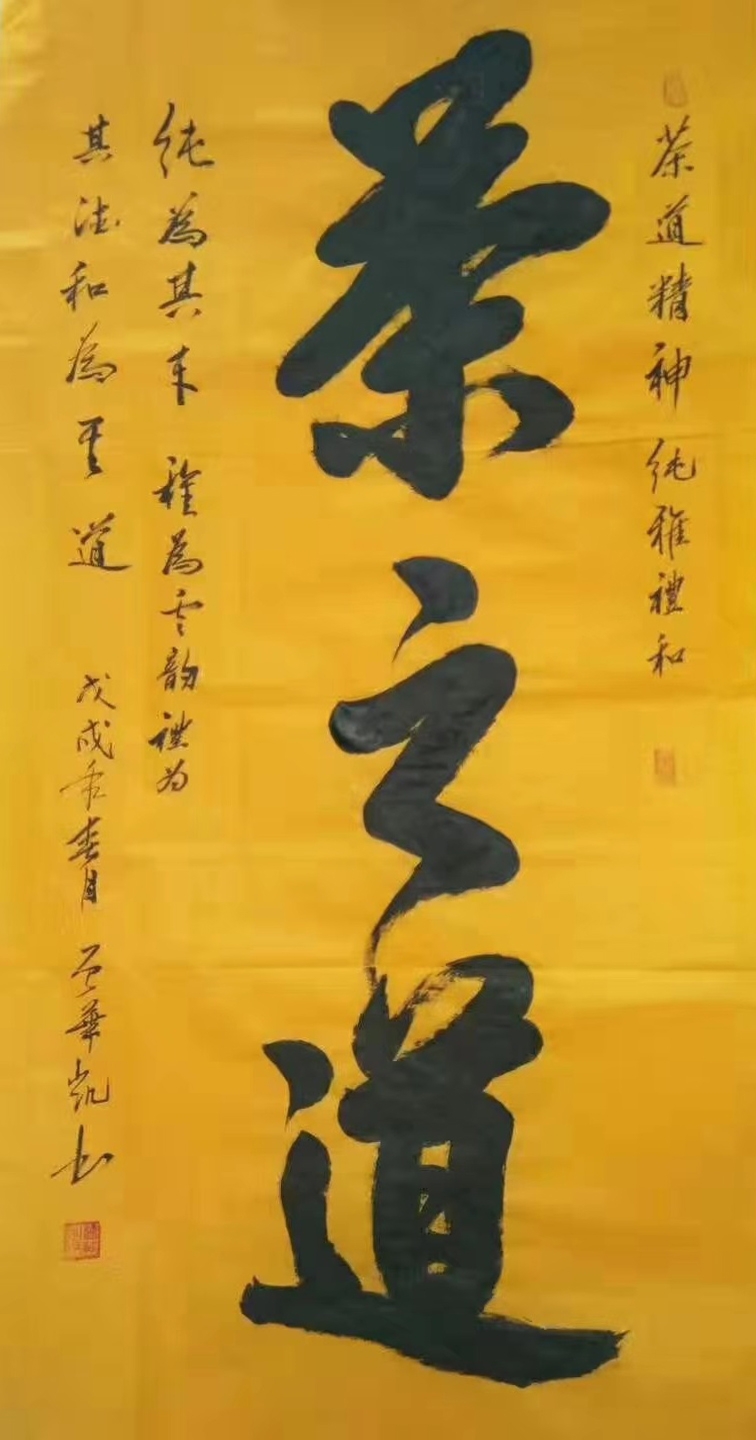 茶道精神纯雅禮和
茶之道
纯為其本雅為其韵禮为
其法和為其道戊戌年春月華凯书